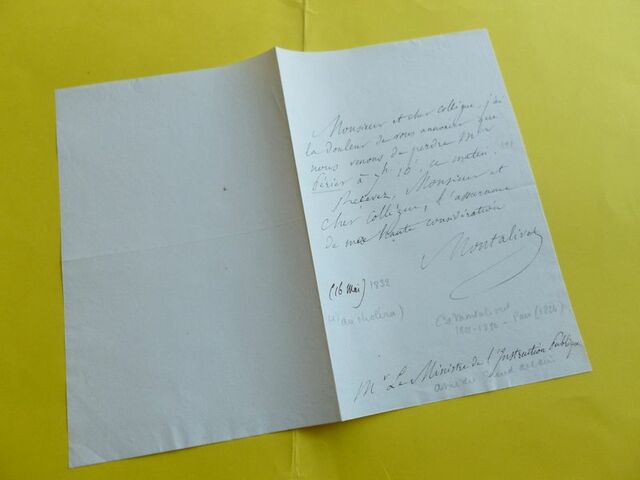 Monsieur et cher collègue, j'ai
la douleur de vous annoncer que
nous venons de perdre Mr
Périer à 7h 10' ce matin.
Recevez, Monsieur et
cher collègue, l'assurance
de ma haute considération
Montalivet
(16 Mai) 1832
(du choléra)
Cte Montalivet
1801-1880 - Pair (1826)
Mr Le Ministre de l'Instruction Publique